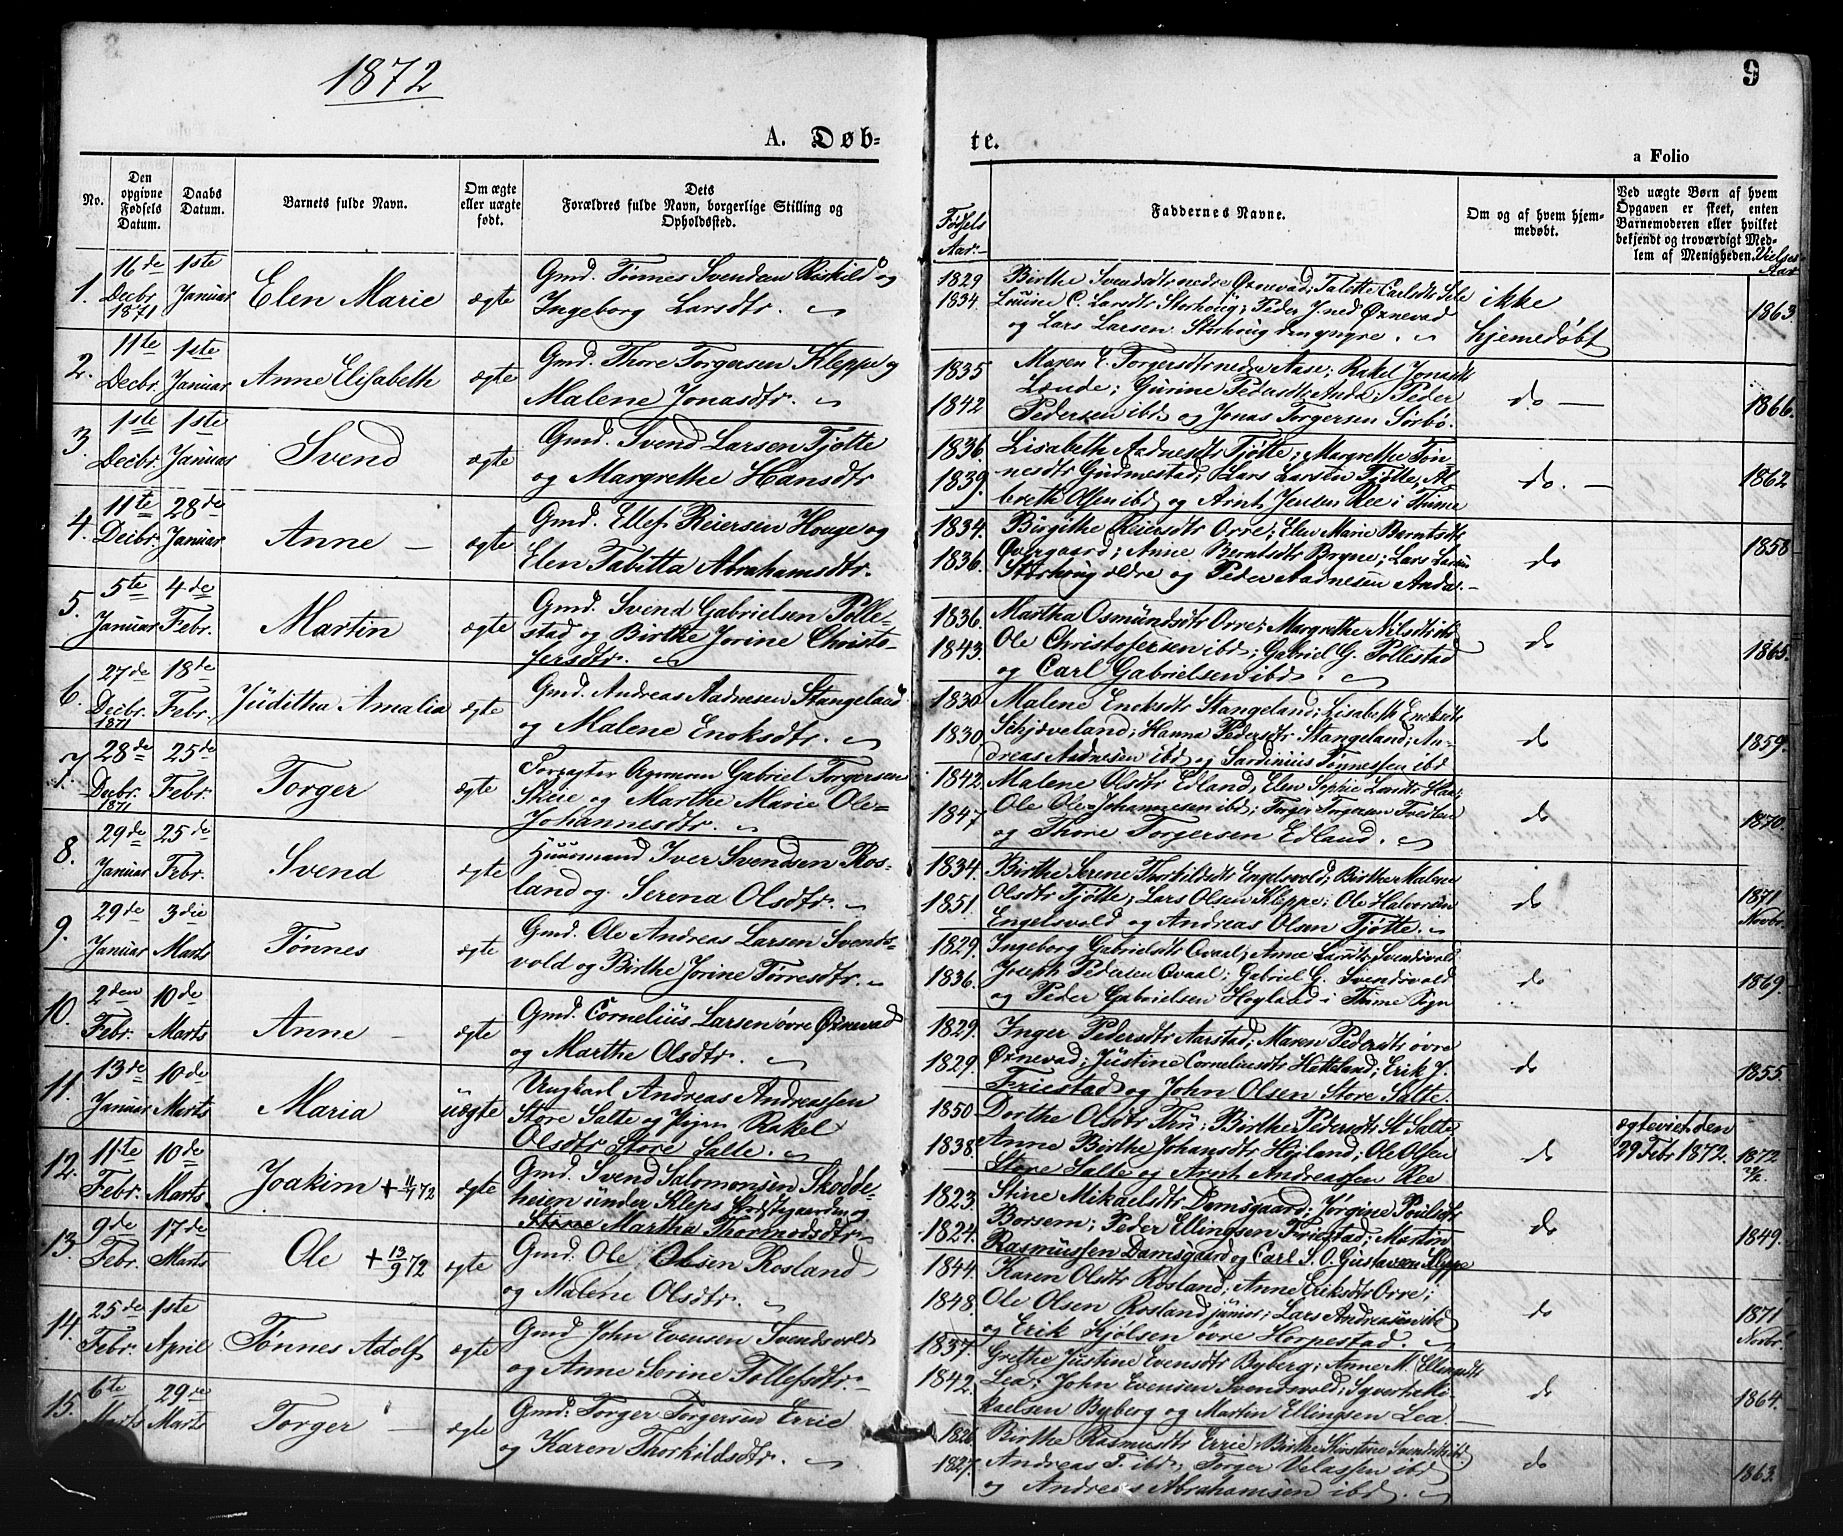 1872
9
A. Døb-
te.
a Folio
No.
Den opgivne Fødsels Datum.
Daabs Datum.
Barnets fulde Navn.
Om ægte eller uægte født.
Dets
Forældres fulde Navn, borgerlige Stilling og Opholdssted.
Fødsels Aar.
Faddernes Navne.
Om og af hvem hjemmedøbt.
Ved uægte Børn af hvem
Opgaven er skeet, enten
Barnemoderen eller hvilket
bekjendt og troværdigt Med-
lem af Menigheden.
Vielses Aar
1. 16de Decbr. 1871 1ste Januar Elen Marie ægte
Gmd. Tønnes Svendsen Riskild og
Ingeborg Larsdtr.
1829 Birthe Svendsdtr nedre Øxnevad; Talette Carlsdtr Sele
1834. C. Larsdtr Storhoug; Peder J. ned Øxnevad
og Lars Larsen Storhoug den yngre.
ikke hjemedøbt
1863.
2. 11te Decbr. 1ste Januar Anne Elisabeth ægte
Gmd. Thore Torgersen Kleppe og
Malene Jonasdtr.
1835 Maren E. Torgersdtr nedre Aase; Rakel Jonasdtr
Lænde; Gurine Pedersdtr Anda; Peder
1842 Pedersen ibd og Jonas Torgersen Sørbø.
do —
1866.
3. 1ste Decbr. 1ste Januar Svend ægte
Gmd. Svend Larsen Tjøtte
og Margrethe Hansdtr
1836. Lisabeth Aadnesdtr Tjøtte; Margrethe Tøn-
1839. nesdtr Gudmestad; Lars Larsen Tjøtte; Al-
breth Olsen ibd og Arnt Jensen Ree i Thime
do. —
1862
4. 11te Decbr. 28de Januar Anne — ægte
Gmd. Ellef Reiersen Houge og
Elen Tabitta Abrahamsdtr.
1834. Birgithe Reiersdtr Orre; Elen Marie Berntsdtr
1836. Øvregaard; Anne Berntsdtr Bryne; Lars Larsen
Storhoug ældre og Peder Aadnesen Anda.
do
1858
5. 5te Januar 4de Febr. Martin ægte
Gmd. Svend Gabrielsen Pølle-
stad og Birthe Jorine Christo-
fersdtr.
1836. Martha Osmundsdtr Orre; Margrethe Nilsdtr ibd
1843. Ole Christofersen ibd; Gabriel G. Pøllestad
og Carl Gabrielsen ibd.
do
1865.
6. 27de Decbr. 1871 18de Febr. Juditha Amalia ægte
Gmd. Andreas Aadnesen Stangeland
og Malene Enoksdtr.
1830 Malene Enoksdtr Stangeland; Lisabeth Enoksdtr
1830. Schjøveland; Hanna Pedersdtr Stangeland; An-
dreas Aadnesen ibd og Sardinius Tønnessen ibd
do
1859.
7. 28de Decbr. 1871 25de Febr. Torger ægte
Forpagter Gabriel Torgersen
Skeie og Marthe Marie Ole-
Johannesdtr.
1842. Malene Olsdtr Edland; Elen Sophie Larsdtr
1847 Ole Ole-Johannesen ibd; Torger Torgersen
og Thore Torgersen Edland.
do
1870.
8. 29de Januar 25de Febr. Svend ægte
Huusmand Iver Svendsen Ros-
land og Serena Olsdtr.
1834. Birthe Serene Thorkildsdtr Engelsvold; Birthe Malene
1851. Olsdtr Tjøtte; Lars Olsen Kleppe; Ole Halvorsen
Engelsvold og Andreas Olsen Tjøtte.
do
1871 Novbr.
9. 29de Januar 3die Marts Tønnes ægte
Gmd. Ole Andreas Larsen Svends-
vold og Birthe Jorine Torresdtr.
1829. Ingeborg Gabrielsdtr Qvaal; Anne Larsdtr Svendsvold
1836. Joseph Pedersen Qvaal; Gabriel G. Svendsvold
og Peder Gabrielsen Høyland i Thime Sogn
do
1869.
10. 2den Febr. 10de Marts Anne — ægte
Gmd. Cornelius Larsen øvre Øxnevad
og Marthe Olsdtr.
1829. Inger Pedersdtr Aarstad; Maren Pedersdtr øvre
1829. Øxnevad; Justine Corneliusdtr Hatteland; Erik J.
Friestad og John Olsen Store Salte.
do
1855.
11. 13de Januar 10de Marts Maria uægte
Ungkarl Andreas Andreassen
Store Salte og Pigen Rakel
Olsdtr Store Salte.
1850. Dorthe Olsdtr Tu; Birthe Pedersdtr St. Salte
1838. Anne Birthe Johansdtr Højland; Ole Olsen
Store Salte og Arnt Andreassen Ree
do
ægteviet den
29 Febr 1872.
1872 29/2.
12. 11te Febr. 10de Marts Joakim + 11/7 72 ægte
Gmd. Svend Salomonsen Skodde-
heien under Kleps Præstegaarden og
Stine Martha Thormodsdtr
1823. Stine Mikaelsdtr Damsgaard; Jørgine Poulsdtr
1824. Borsem; Peder Ellingsen Friestad; Morten
Rasmussen Damsgaard og Carl S. O. Gustavsen Kleppe
do
1849.
13. 9de Febr. 17de Marts Ole + 13/9 72 ægte
Gmd. Ole Olsen Rosland
og Malene Olsdtr.
1844. Karen Olsdtr Rosland; Anne Eriksdtr Orre;
1848. Ole Olsen Rosland junior; Lars Andreasen ibd
og Erik Kjølsen øvre Horpestad.
do
1871 Novbr.
14. 25de Febr. 1ste April Tønnes Adolf ægte
Gmd John Evensen Svendsvold
og Anne Serine Tollefsdtr.
1837. Grethe Justine Evensdtr Byberg; Anne M. Ellingsdtr
1842. Lea; John Evensen Svendsvold; Syvert Mi-
kaelsen Byberg og Martin Ellingsen Lea.
do
1864.
15. 6te Marts 29de Marts Torger — ægte
Gmd. Torger Torgersen Errie
og Karen Thorkildsdtr.
1826. Birthe Rasmusdtr Errie; Birthe Kirstine Svendsdtr ibd.
1827. Andreas T. ibd; Torger Velassen ibd
og Andreas Abrahamsen ibd.
do
1863.